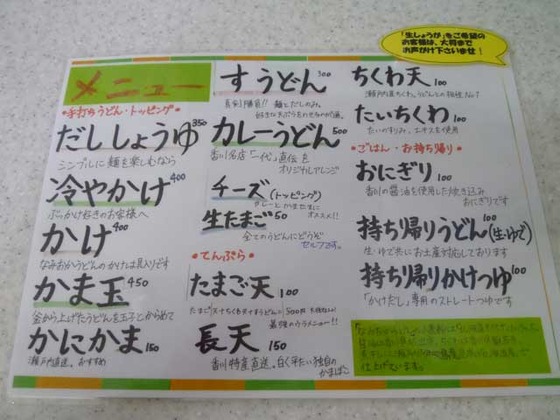 「生しょうが」をご希望の
お客様は、大将まで
お声がけ下さいませ!
メニュー
・手打ちうどん・トッピング・
だししょうゆ 350
シンプルに麺を楽しむなら
冷やかけ 400
ぶっかけ好きのお客様へ
かけ 400
なみおかうどんのかけは具入りです
かま玉 450
釜から上げたうどんを玉子とからめて
かにかま 150
瀬戸内直送。おすすめ
すうどん 300
麺とだしのみ。
カレーうどん 500
香川名店「一代」直伝
オリジナルアレンジ
チーズ (トッピング)
カレーとかま玉に
オススメ!!
生たまご 50
全てのうどんにどうぞ
セルフです。
・てんぷら・
たまご天 100
最強のうメニュー!!
長天 150
香川特産直送。白く平たい独自の
かまぼこ
ちくわ天 100
たいちくわ 100
たいのすりみ、エキスを使用
・ごはん・お持ち帰り・
おにぎり 100
香川の醤油を使用した炊き込み
おにぎりです
持ち帰りうどん 100 (生・ゆで)
生・ゆで共にお土産対応しております
持ち帰りかけつゆ 100
「かけだし」専用のストレートつゆです
仕上げています。